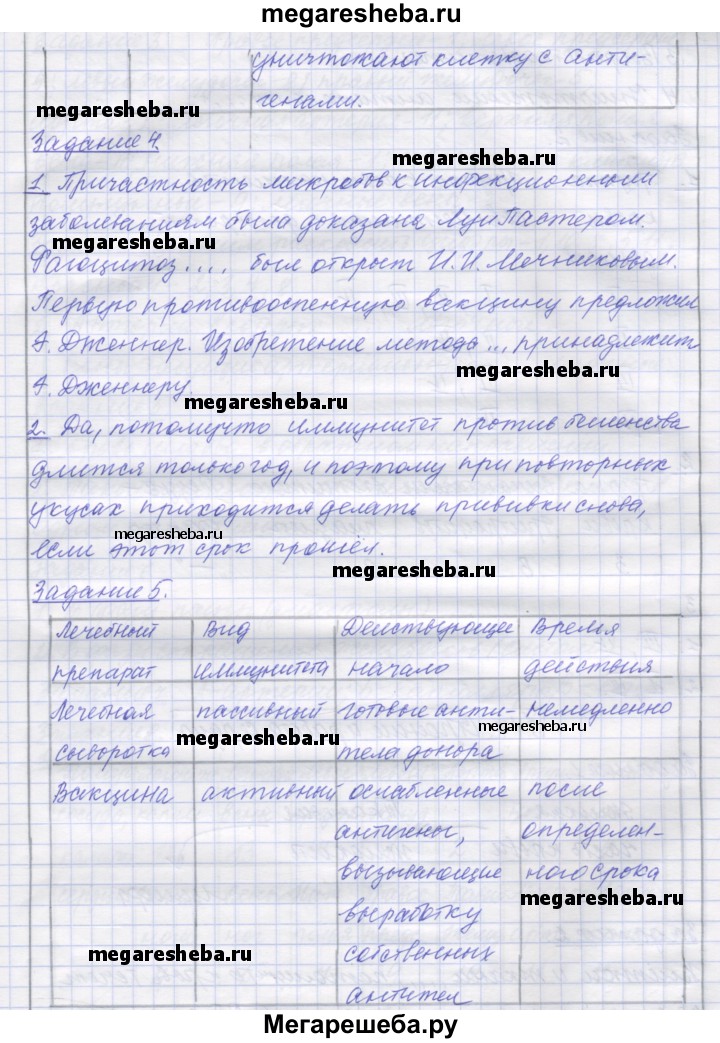 megaresheba.ru
уничтожают клетку с анти-
генами.
megaresheba.ru
Задание 4.
megaresheba.ru
1. Причастность микробов к инфекционным
заболеваниям была доказана Луи Пастером.
megaresheba.ru
Фагоцитоз .... был открыт И.И. Мечниковым.
Первую противооспенную вакцину предложил
Э. Дженнер. Изобретение метода ... принадлежит
megaresheba.ru
Э. Дженнеру.
megaresheba.ru
2. Да, потому что иммунитет против бешенства
длится только год, и поэтому при повторных
укусах приходится делать прививки снова,
megaresheba.ru
если этот срок прошёл.
megaresheba.ru
Задание 5.
Лечебный Вид Действующее Время
препарат иммунитета начало действия
Лечебная пассивный готовые анти- немедленно
megaresheba.ru megaresheba.ru
сыворотка тела донора
Вакцина активный ослабленные после
антигены, определен-
вызывающие ного срока
megaresheba.ru
выработку
megaresheba.ru
собственных
антител
megaresheba.ru
Мегарешеба.ру